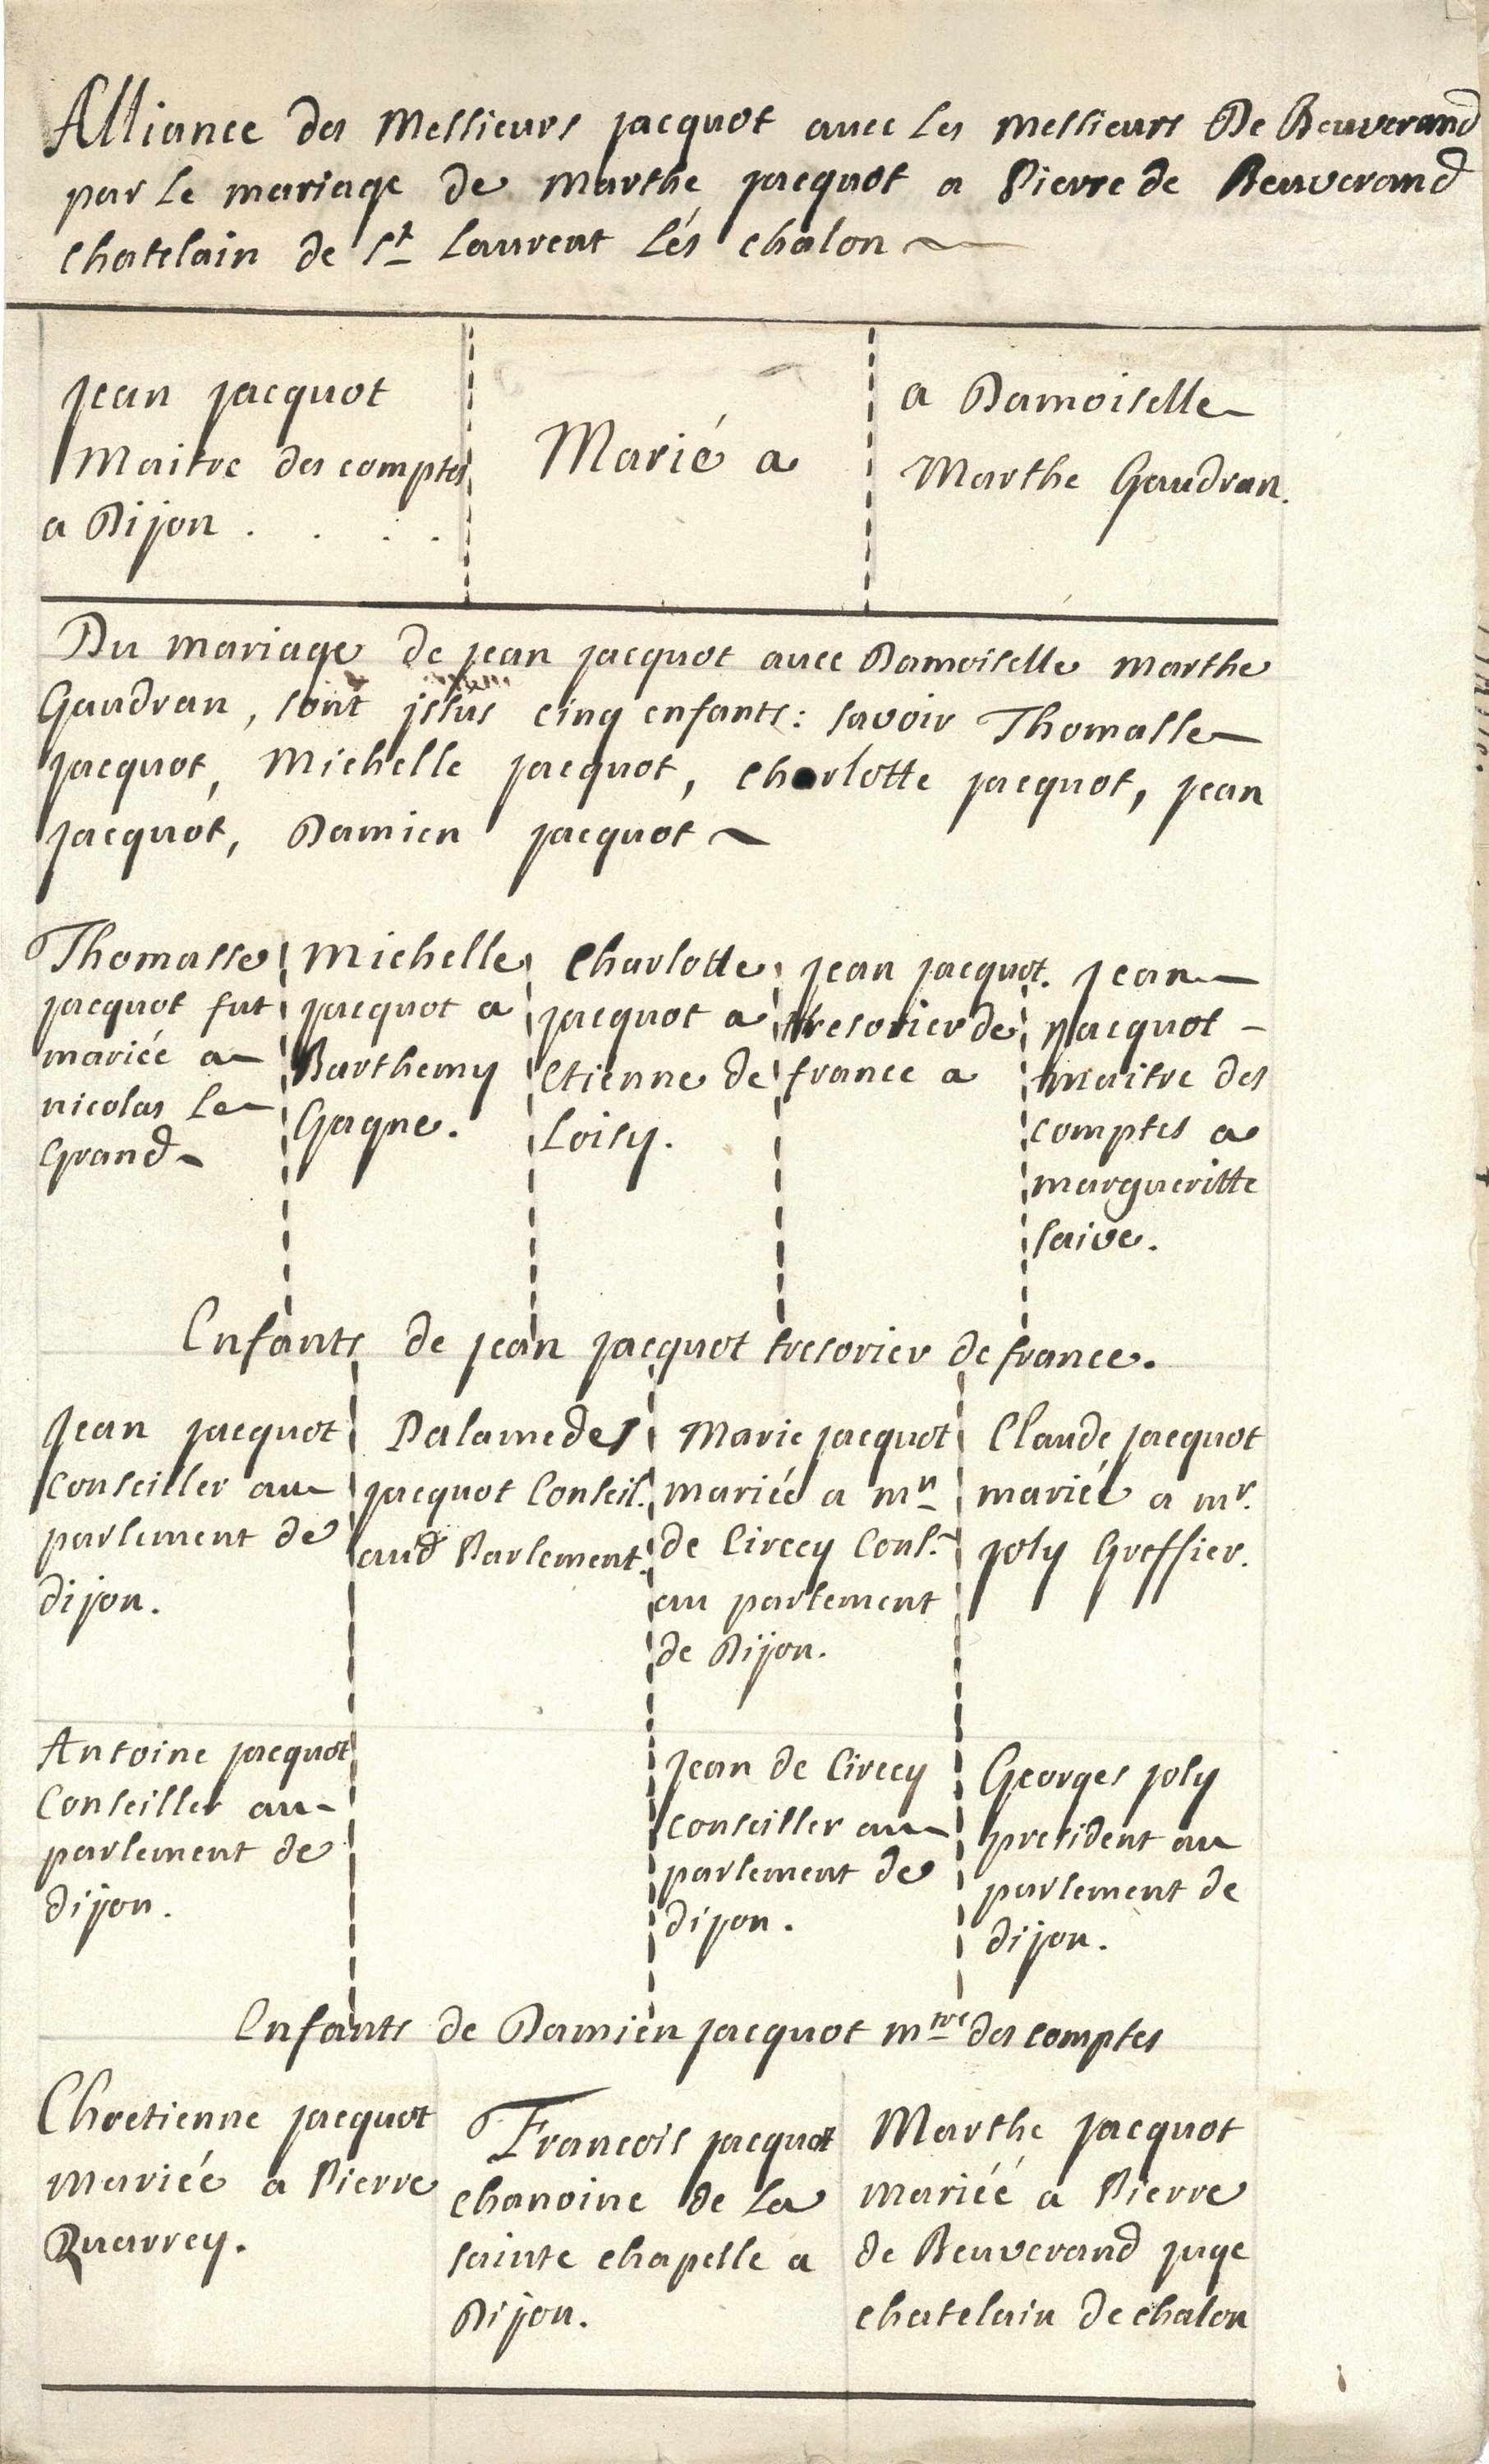 Alliance des Messieurs jacquot avec les messieurs De Beuverand
par le mariage de marthe jacquot a Pierre de Beuverand
chatelain de st laurent lés chalon
jean jacquot
Maitre des comptes
a Dijon . . . .
Marié a
a Damoiselle
Marthe Gaudran.
Du mariage de jean jacquot avec Damoiselle marthe
Gaudran, sont jssus cinq enfants: savoir Thomasse
jacquot, Michelle jacquot, charlotte jacquot, jean
jacquot, Damien jacquot
Thomasse
jacquot fut
mariée a
nicolas le
Grand
Michelle
jacquot a
Barthemy
Gagne.
Charlotte
jacquot a
Etienne de
Loisy.
jean jacquot.
tresorier de
france a
jean
jacquot
maitre des
comptes a
margueritte
saive.
Enfants de jean jacquot tresorier de france.
Jean jacquot
conseiller au
parlement de
dijon.
Palamedes
jacquot Conseil.
aud Parlement.
Marie jacquot
mariée a mr
de Cirecy Cons.
au parlement
de Dijon.
Claude jacquot
mariée a mr.
joly Greffier.
Antoine jacquot
Conseiller au
parlement de
dijon.
Jean de Cirecy
conseiller au
parlement de
dijon.
Georges joly
president au
parlement de
dijon.
Enfants de Damien jacquot mtre des comptes
Chretienne jacquot
mariée a Pierre
Quarrey.
Francois jacquot
chanoine de la
sainte chapelle a
Dijon.
Marthe jacquot
mariéé a Pierre
de Beuverand juge
chatelain de chalon